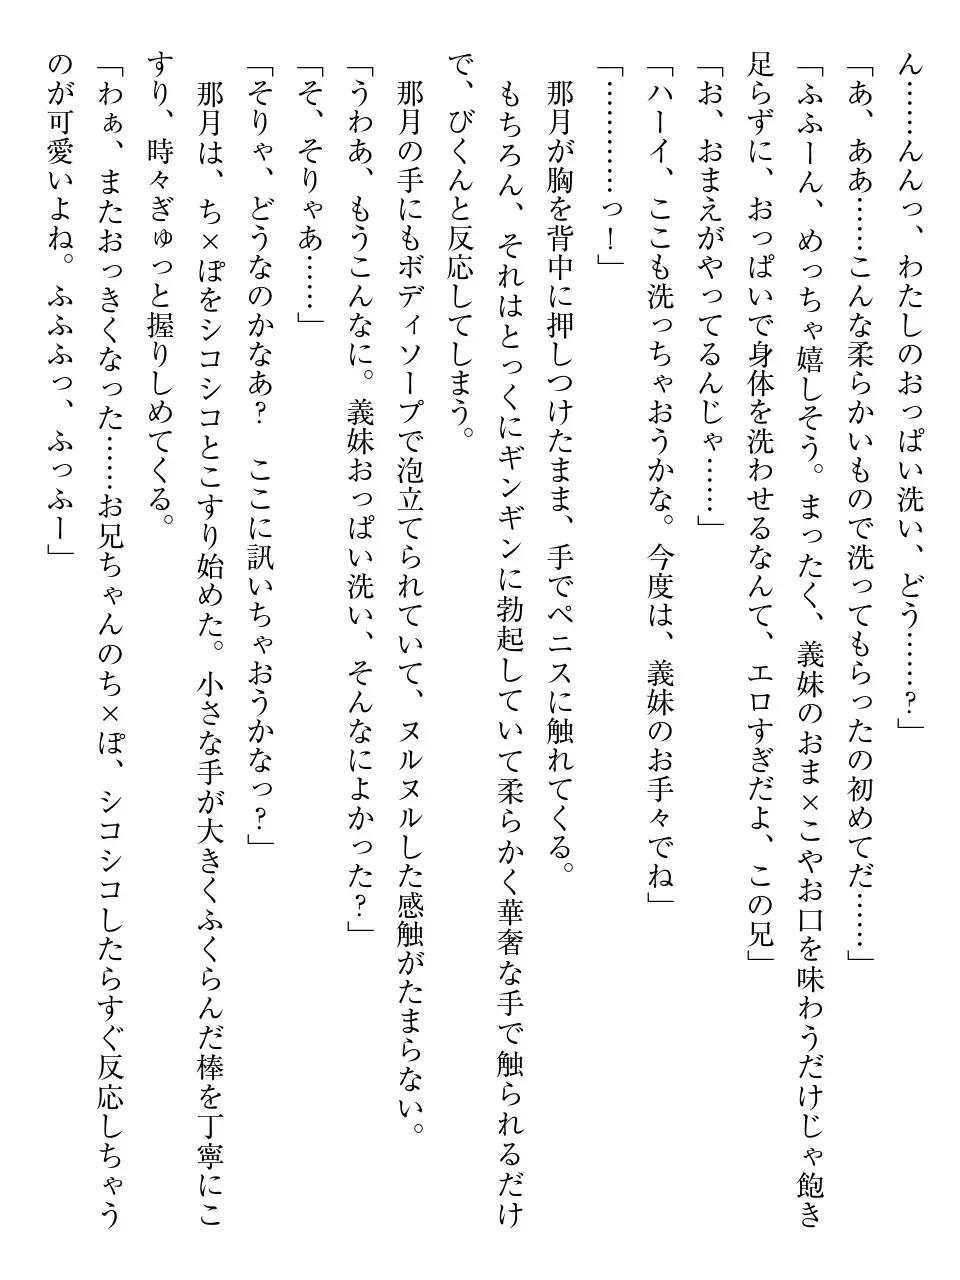 ん……んんっ、わたしのおっぱい洗い、どう……?」
「あ、ああ……こんな柔らかいもので洗ってもらったの初めてだ……」
「ふふーん、めっちゃ嬉しそう。まったく、義妹のおま×こやお口を味わうだけじゃ飽き
足らずに、おっぱいで身体を洗わせるなんて、エロすぎだよ、この兄」
「お、おまえがやってるんじゃ……」
「ハーイ、ここも洗っちゃおうかな。今度は、義妹のお手々でね」
「…………っ!」
　那月が胸を背中に押しつけたまま、手でペニスに触れてくる。
　もちろん、それはとっくにギンギンに勃起していて柔らかく華奢な手で触られるだけ
で、びくんと反応してしまう。
　那月の手にもボディソープで泡立てられていて、ヌルヌルした感触がたまらない。
「うわあ、もうこんなに。義妹おっぱい洗い、そんなによかった?」
「そ、そりゃあ……」
「そりゃ、どうなのかなあ?　ここに訊いちゃおうかなっ?」
　那月は、ち×ぽをシコシコとこすり始めた。小さな手が大きくふくらんだ棒を丁寧にこ
すり、時々ぎゅっと握りしめてくる。
「わぁ、またおっきくなった……お兄ちゃんのち×ぽ、シコシコしたらすぐ反応しちゃう
のが可愛いよね。ふふふっ、ふっふー」